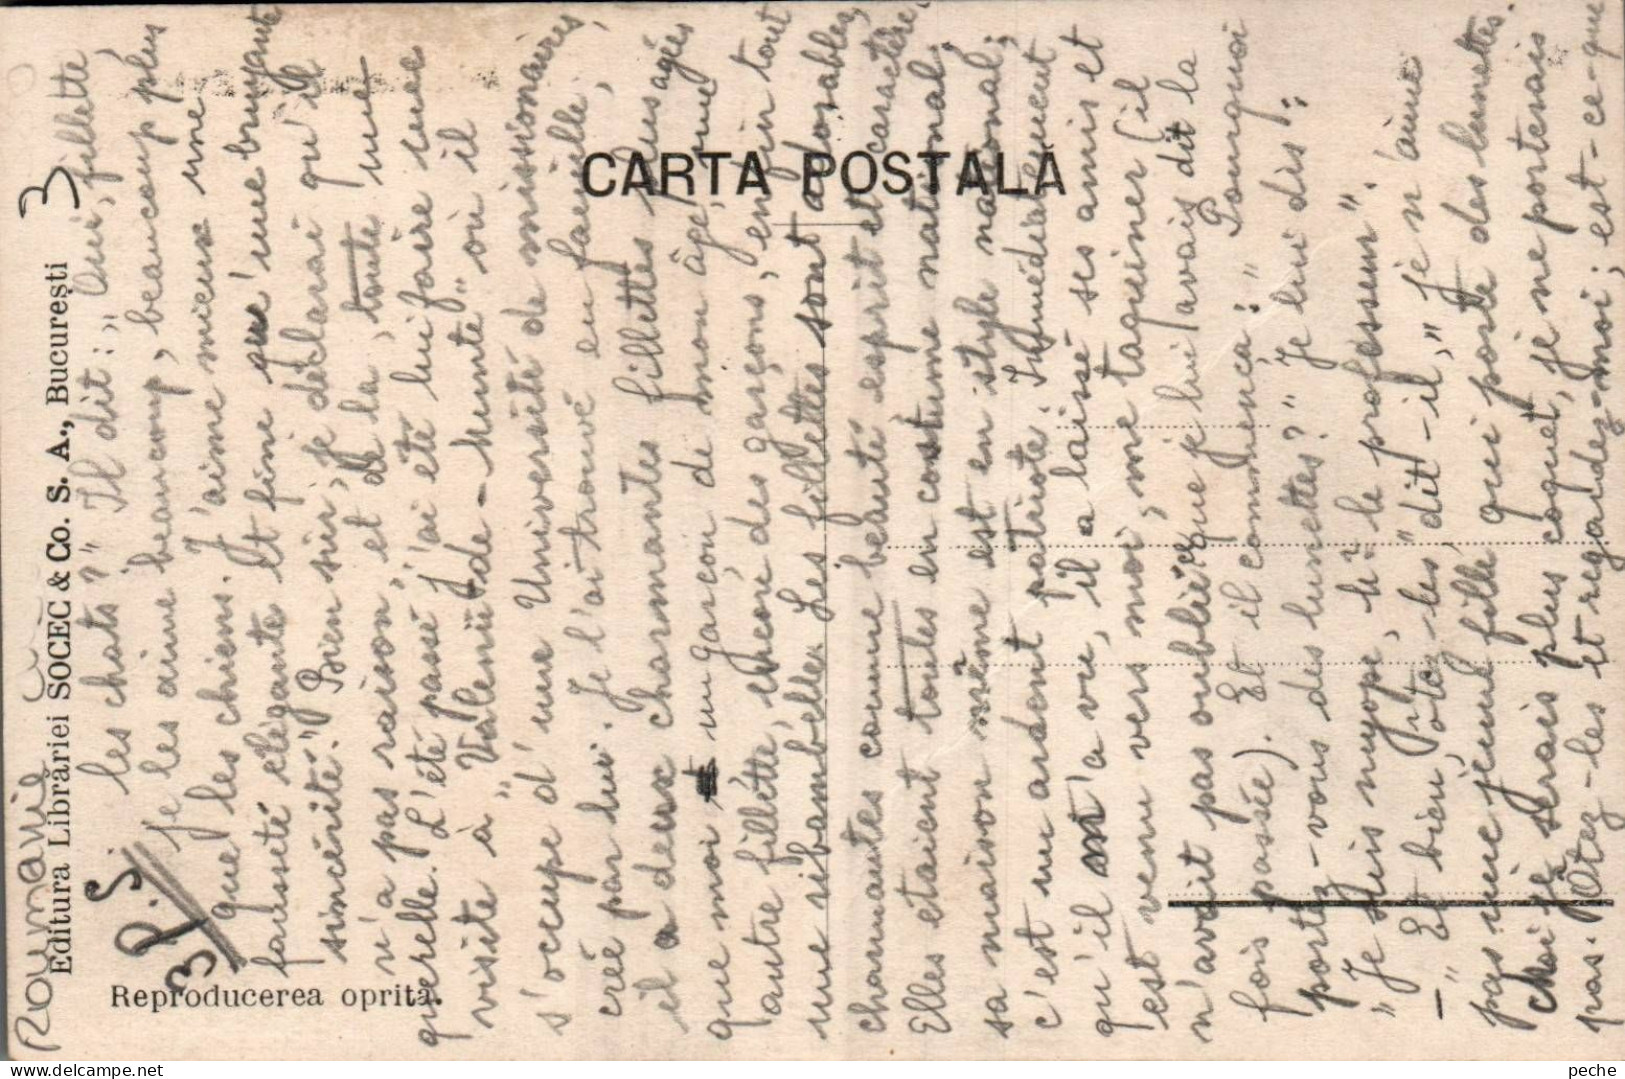 Roumanie
Editura Librăriei SOCEC & Co. S. A., București
3
Reproducerea oprită.
CARTA POSTALĂ
3 P.S.
les chats?" Il dit: "Oui, fillette,
je les aime beaucoup, beaucoup plus
que les chiens. J'aime mieux une
fausseté élégante et fine que l'une bruyante
sincérité." Bien sûr, je déclarai qu'il
n'a pas raison, et de là, toute une
querelle. L'été passé j'ai été lui faire une
visite à "Valenii-de-Munte" où il
s'occupe d'une Université de missionaires,
créé par lui. Je l'ai trouvé en famille,
il a deux charmantes fillettes plus agées
que moi un garçon de mon âge, une
autre fillette, encore des garçons, enfin tout
une ribambelle. Les fillettes sont adorables,
charmantes comme beauté esprit et caractère.
Elles etaient toutes en costume national,
sa maison même est en style national;
c'est un ardent patriote. Immédiatement
qu'il m'a vu, il a laissé ses amis et
est venu vers moi, me taquiner (il
n'avait pas oublié ce que je lui avais dit la
fois passée). Et il commença: "Pourquoi
portez-vous des lunettes?" Je lui dis:
"Je suis myope, M-r le professeur".
— "Et bien, ôtez-les" dit-il, "je n'aime
pas une jeune fille qui porte des lunettes.
Moi je serais plus coquet, je ne porterais
pas. Otez-les et regardez-moi; est-ce que
peche delcampe.net